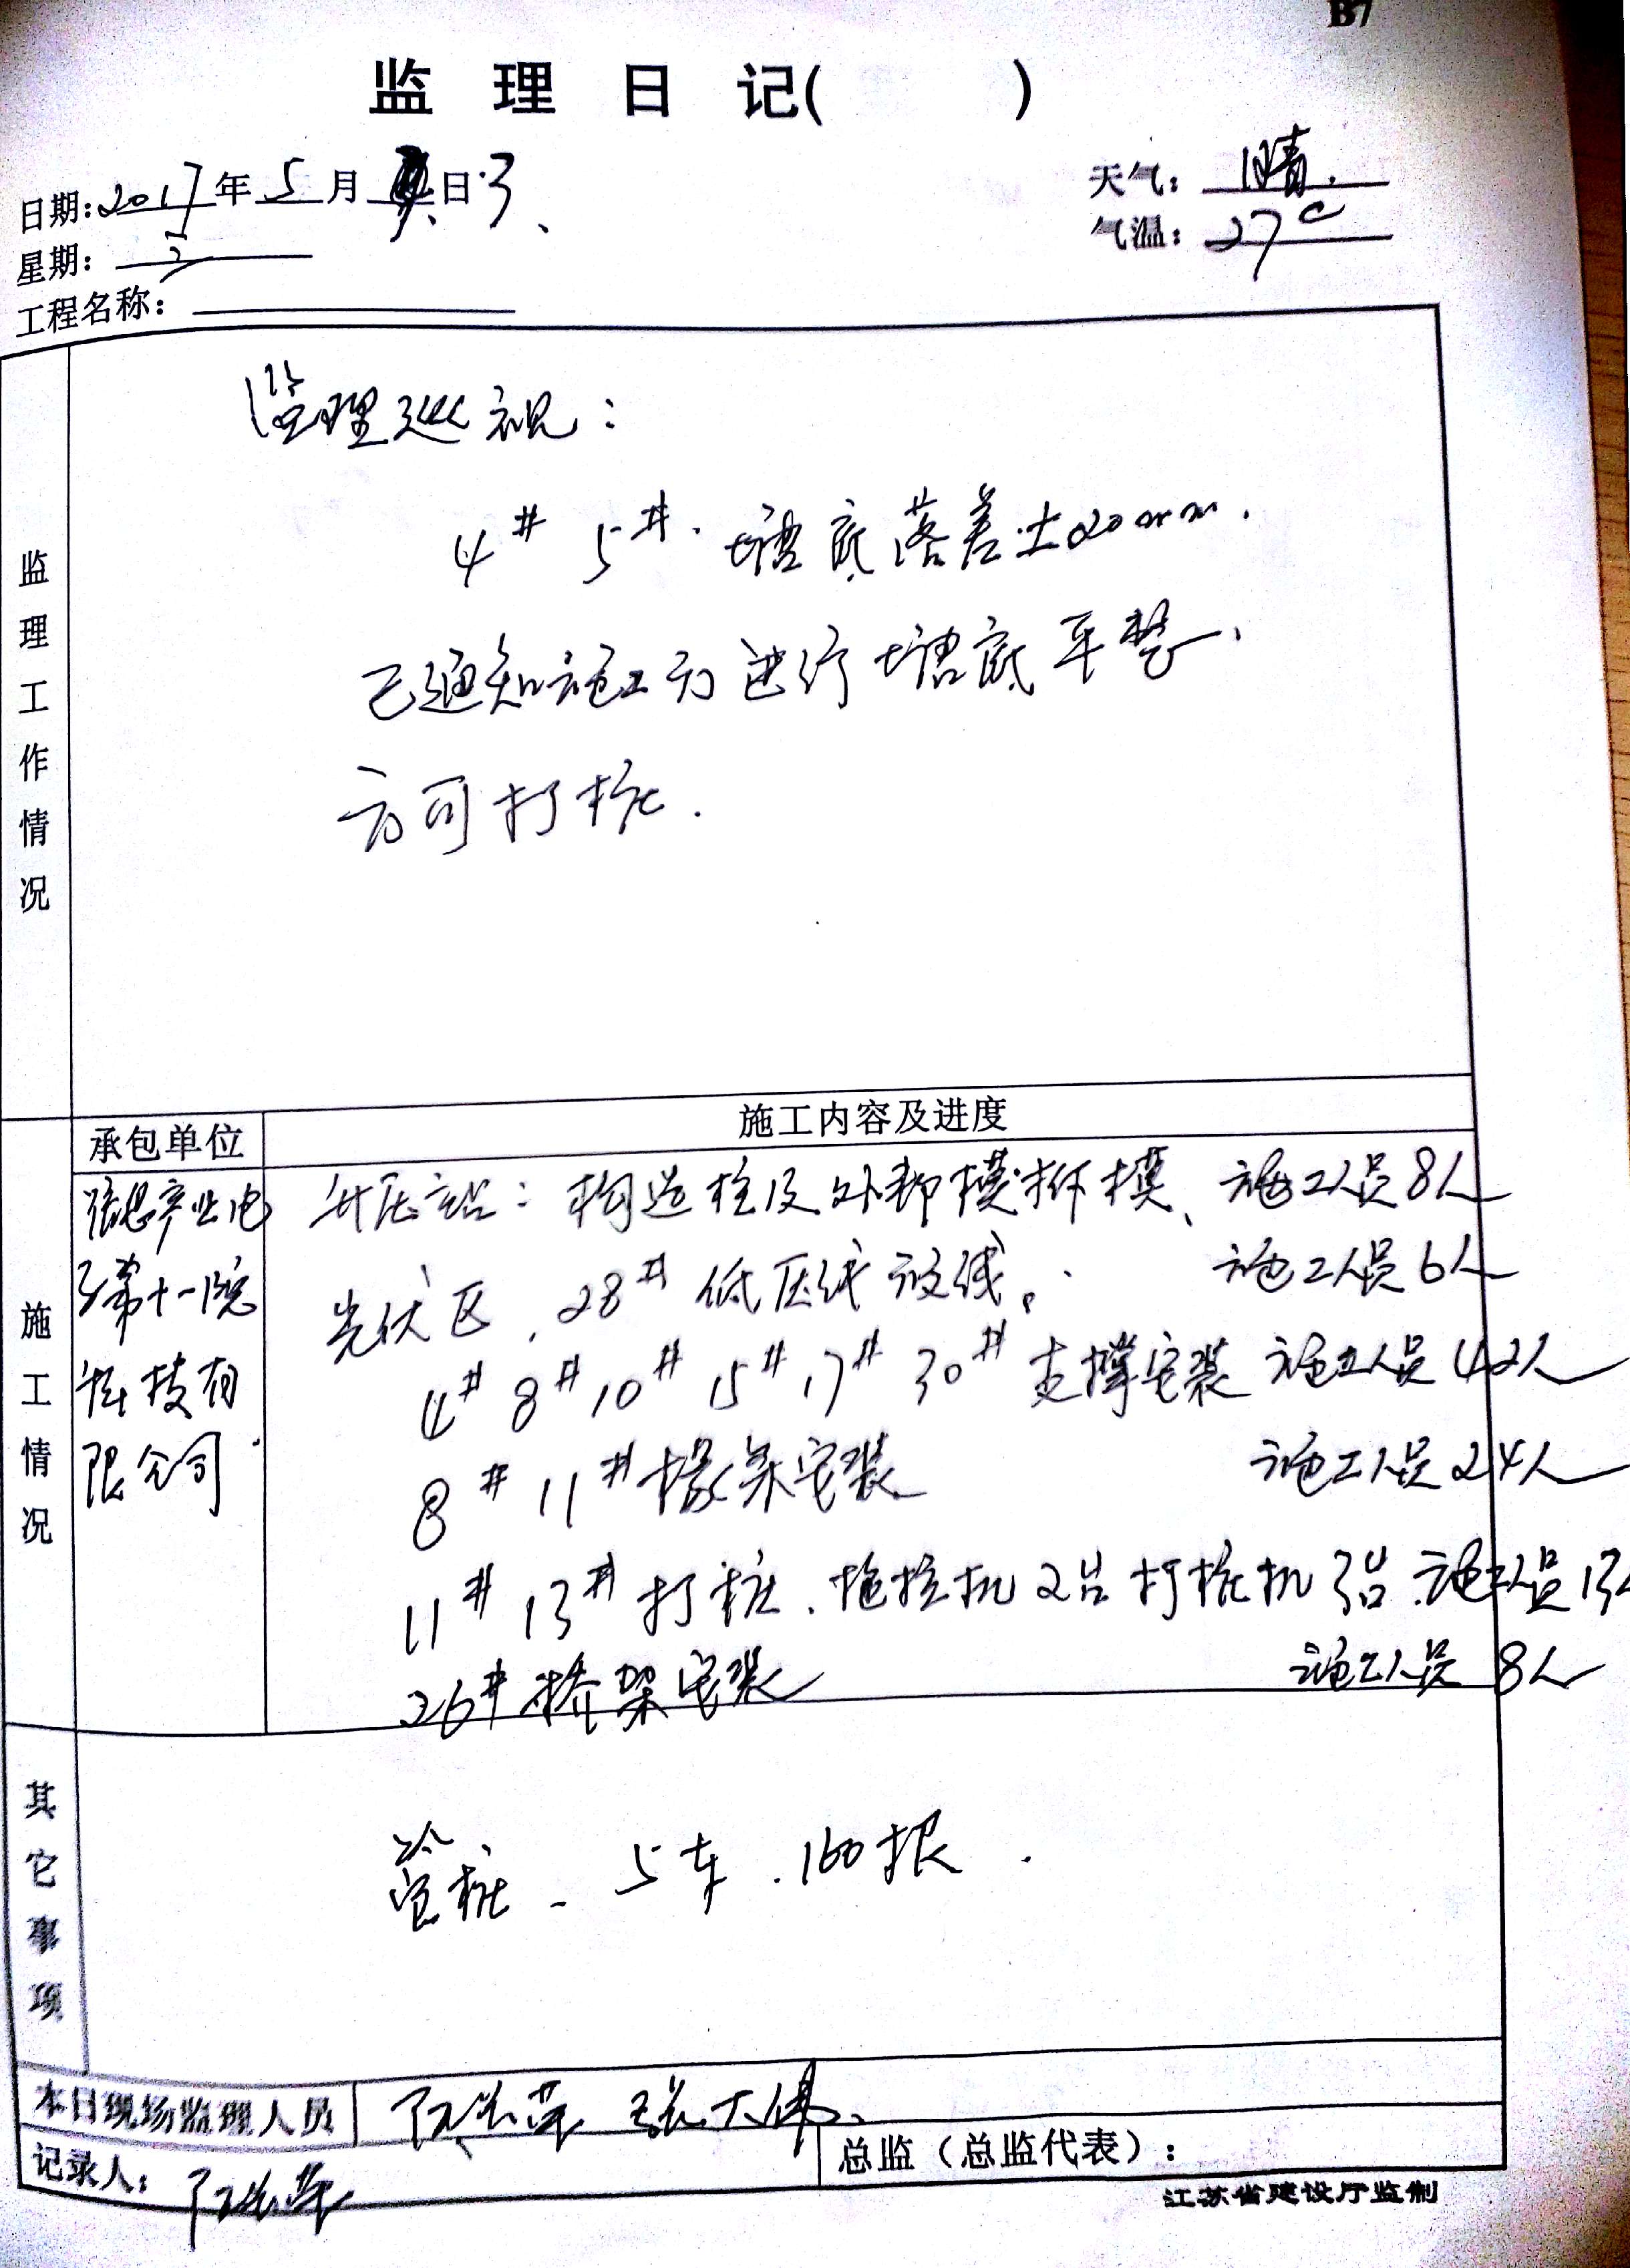 B7
监理日记( )
日期:2017年5月日3、
天气:晴.
气温:27℃
星期:三
工程名称:
监理工作情况
监理巡视:
4# 5#.塘底落差±20mm.
已通知施工方进行塘底平整、
方可打桩.
承包单位
施工内容及进度
施工情况
信息产业电
子第十一院
科技有
限公司.
升压站:构造柱及外部模拆模、施工人员8人
光伏区,28#低压线放线。施工人员6人
4# 8# 10# 15# 17# 30#支撑安装 施工人员42人
8# 11#檩条安装 施工人员24人
11# 13#打桩.拖拉机2台打桩机3台.施工人员13人
26#桥架安装 施工人员8人
其它事项
管桩-5车.160根.
本日现场监理人员
张大伟、
记录人:
总监(总监代表):
江苏省建设厅监制